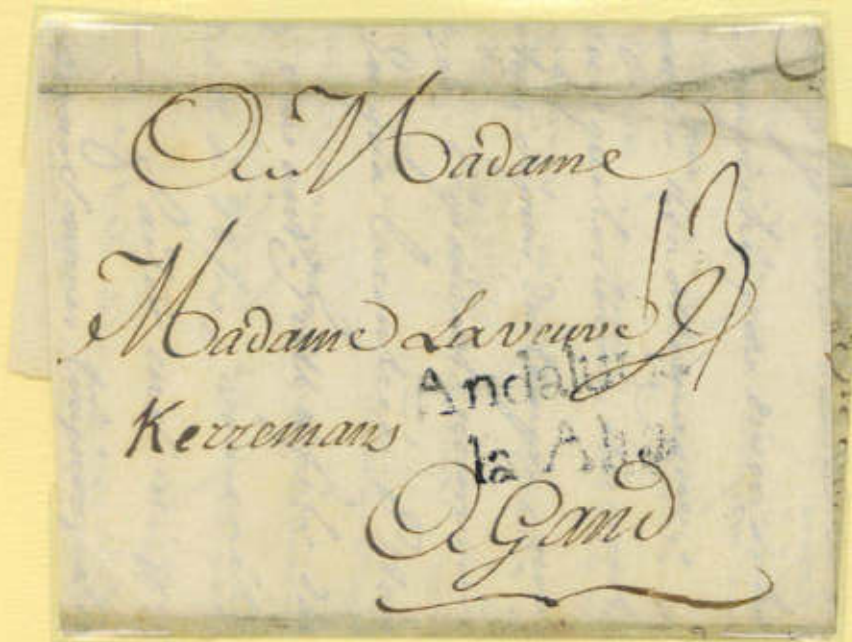 A Madame
13
Madame La veuve
Kerremans
Andaluc
la Alta
A Gand